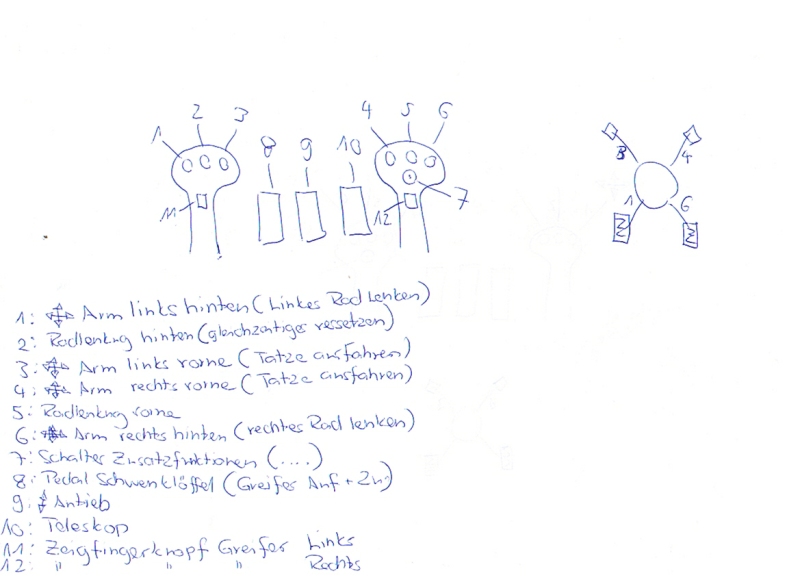 1 2 3 8 9 10 4 5 6
11 12 7
3 4
1 6
1: Arm links hinten (Linkes Rad Lenken)
2: Radlenkng hinten (gleichzeitiges versetzen)
3: Arm links vorne (Tatze ausfahren)
4: Arm rechts vorne (Tatze ausfahren)
5: Radlenkng vorne
6: Arm rechts hinten (rechtes Rad lenken)
7: Schalter Zusatzfunktionen (....)
8: Pedal Schwenklöffel (Greifer Auf + Zu)
9: Antieb
10: Teleskop
11: Zeigfingerknopf Greifer Links
12: " " " Rechts